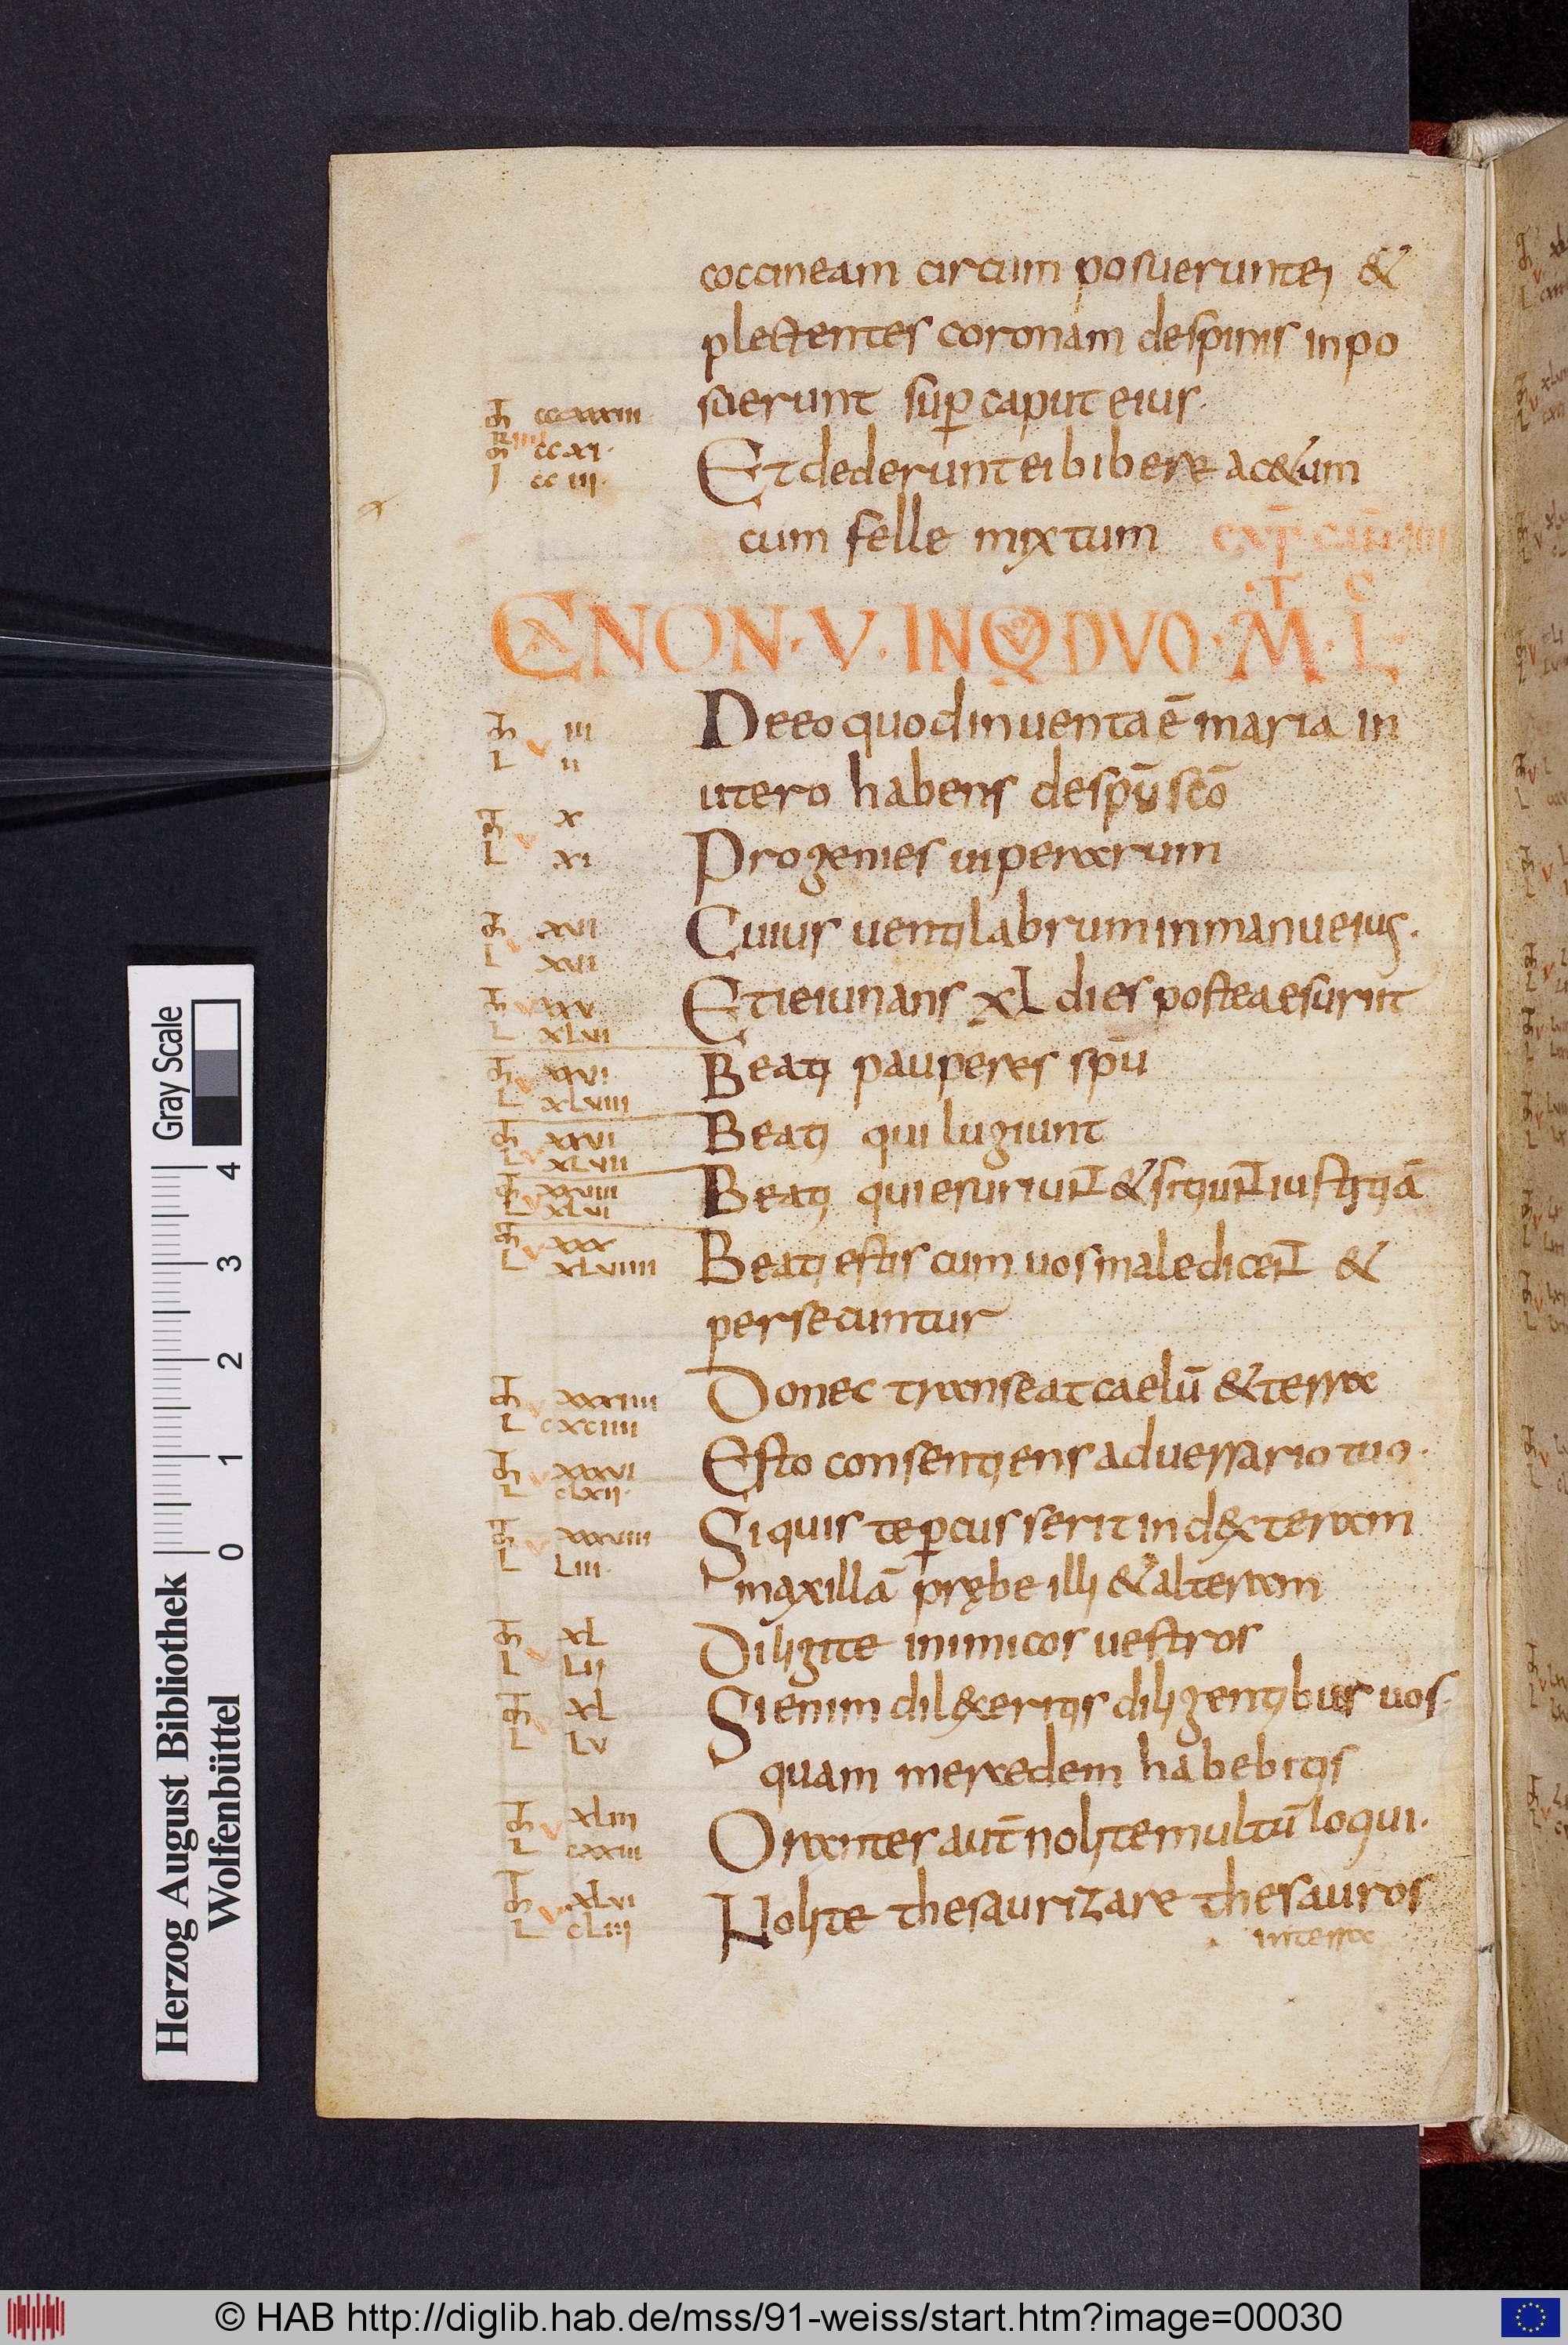 coccineam circum posuerunt ei &
plectentes coronam de spinis inpo
suerunt sup̄ caput eius.
m̄ cccxxxiii
ccxi.
I cciii.
Et dederunt ei bibere ac&um
cum felle mixtum EXP̄ CAN̄ IIII
CANON. V. IN QVO DVO. M̄T. L̄C.
m̄ iii
L ii
V
De eo quod inuenta ē maria in
utero habens de spū scō
m̄ x
L xi
V
Progenies uiperarum
m̄ xvii
L xvii
V
Cuius uentilabrum in manu eius.
m̄ xv
L xlvi
V
Et ieiunans xl dies postea esuriit
m̄ xxvi
L xlviii
V
Beati pauperes spū
m̄ xxvii
L xlvii
V
Beati qui lugiunt
m̄ xxviii
L xlvi
V
Beati qui esuriunt & sitiunt iustitiā
m̄ xxx
L xlviiii
V
Beati estis cum uos maledicent &
persecuntur
m̄ xxxiiii
L cxciiii
V
Donec transeat caelū & terra
m̄ xxxvi
L clxii.
V
Esto consentiens aduersario tuo.
m̄ xxxviii
L liii.
V
Si quis te p̄cusserit in dexteram
maxillā prębe illi & alteram
m̄ xl
L lii
V
Diligite inimicos uestros
m̄ xl
L lv
V
Si enim dilexeritis diligentibus uos.
quam mercedem habebitis
m̄ xliii
L cxxiii
V
Orantes aut̄ nolite multū loqui.
m̄ xlvi
L cliii
V
Nolite thesaurizare thesauros
in terra
Gray Scale
4 3 2 1 0
Herzog August Bibliothek
Wolfenbüttel
© HAB http://diglib.hab.de/mss/91-weiss/start.htm?image=00030